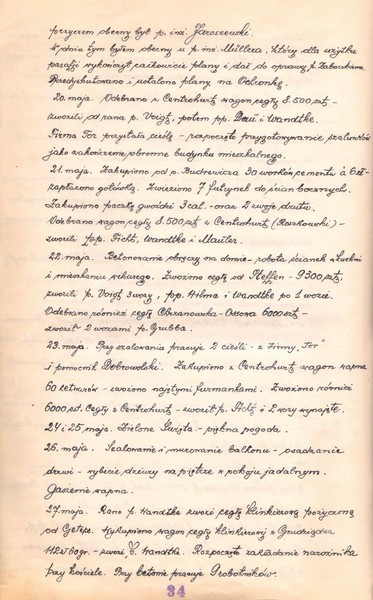 przyczem obecny był p. inż. Jaroszewski.
W dniu tym byłem obecny u p. inż. Müllera, który dla użytku
parafji wykończył całkowicie plany i dał do oprawy p. Zaborskiemu
Przedyskutowano i ustalono plany na Odlonkę.
20. maja. Odebrano z Centrohurty wagon cegły 8.500 szt -
zwozili od rana p. Voigt, potem pp. Drau i Wandtke.
Firma Tor przysłała cieślę - rozpoczęto przygotowywanie szalunków
jako zakończenie obronne budynku mieszkalnego.
21. maja. Zakupiono od p. Budrewicza 30 worków cementu à 6 zł -
zapłacono gotówką. Zwieziono 7 futrynek do ścian bocznych.
Zakupiono paczkę gwoździ 3 cal. - oraz 2 zwoje drutu.
Odebrano wagon cegły 8.500 szt z Centrohurty (Raszkowski) -
zwozili pp. Ficht, Wandtke i Mauler.
22. maja. Betonowanie obręczy na domie - robota ścianek w kuchni
i mieszkaniu wikarego. Zwożono cegłę od Steffen - 9300 szt,
zwozili p. Voigt 3 wozy, pp. Hilma i Wandtke po 1 wozie.
Odebrano również cegłę Chrzanowska - Ossowa 6000 szt -
zwozić 2 wozami p. Grubba.
23. maja. Przy szalowaniu pracuje 2 cieśli - z Firmy "Tor"
i pomocnik Dobrowolski. Zakupiono z Centrohurty wagon wapna
60 cetnarów - zwożono najętymi furmankami. Zwożono również
6000 szt. cegły z Centrohurty - zwoził p. Ficht i 2 wozy wynajęte.
24 i 25. maja. Zielone Święta - piękna pogoda.
26. maja. Szalowanie i murowanie balkonu - osadzanie
drzwi - wybicie dziury na piętrze w pokoju jadalnym.
Gaszenie wapna.
27. maja. Rano p. Wandtke zwozi cegłę klinkierową pożyczoną
od Getepe. Wykupiono wagon cegły klinkierowej z Grudziądza
112 zł 60 gr. - zwozi p. Wandtke. Rozpoczęto zakładanie narożnika
przy kościele. Przy betonie pracuje 9 robotników.
34